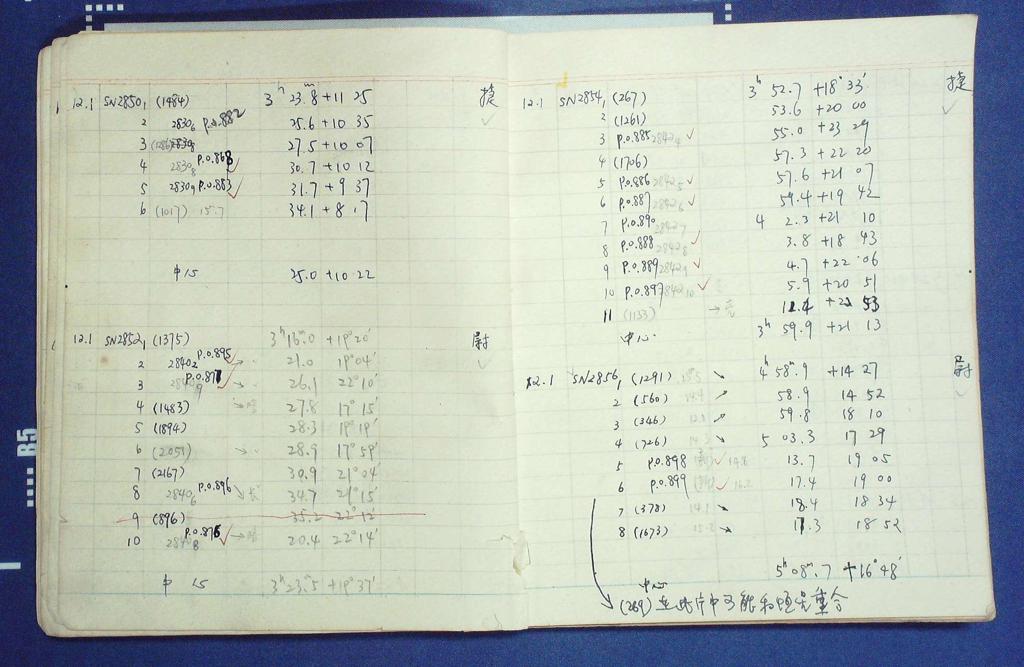 12.1 SN2850₁ (1484) 3ʰ 23.8ᵐ +11 25 捷
2 2830₆ P.O.882 25.6 +10 35
3 27.5 +10 07
4 2830₈ P.O.868 30.7 +10 12
5 2830₉ P.O.883 31.7 +9 37
6 (1017) 15.7 34.1 +8 17
中 15 25.0 +10 22
12.1 SN2852₁ (1375) 3ʰ 16ᵐ.0 +19°20′ 尉
2 2840₂ P.O.895 21.0 19°04′
3 26.1 22°10′
4 (1483) 27.8 17°15′
5 (1894) 28.3 19°19′
6 (2051) 28.9 17°59′
7 (2167) 30.9 21°04′
8 2840₆ P.O.896 34.7 21°15′
9 (896) 35.2 22°12′
10 2840₈ 20.4 22°14′
中 15 3ʰ23ᵐ.5 +19°37′
12.1 SN2854₁ (267) 3ʰ 52.7 +18°33′ 捷
2 (1261) 53.6 +20 00
3 P.O.885 2842₄ 55.0 +23 29
4 (1706) 57.3 +22 20
5 P.O.886 2842₅ 57.6 +21 07
6 P.O.887 2842₆ 59.4 +19 42
7 P.O.890 2842₇ 4 2.3 +21 10
8 P.O.888 2842₈ 3.8 +18 43
9 P.O.889 2842₉ 4.7 +22 06
10 P.O.897 2842₁₀ 5.9 +20 51
11 (1133) 53
中心 3ʰ 59.9 +21 13
12.1 SN2856₁ (1291) 4ʰ 58ᵐ.9 +14 27 尉
2 (560) 58.9 14 52
3 (346) 59.8 18 10
4 (726) 5 03.3 17 29
5 P.O.898 14.8 13.7 19 05
6 P.O.899 16.2 17.4 19 00
7 (378) 14.1 18.4 18 34
8 (1673) 18 52
中心 5ʰ 08ᵐ.7 +16°48′
(269) 在此片中可能和恒星重合